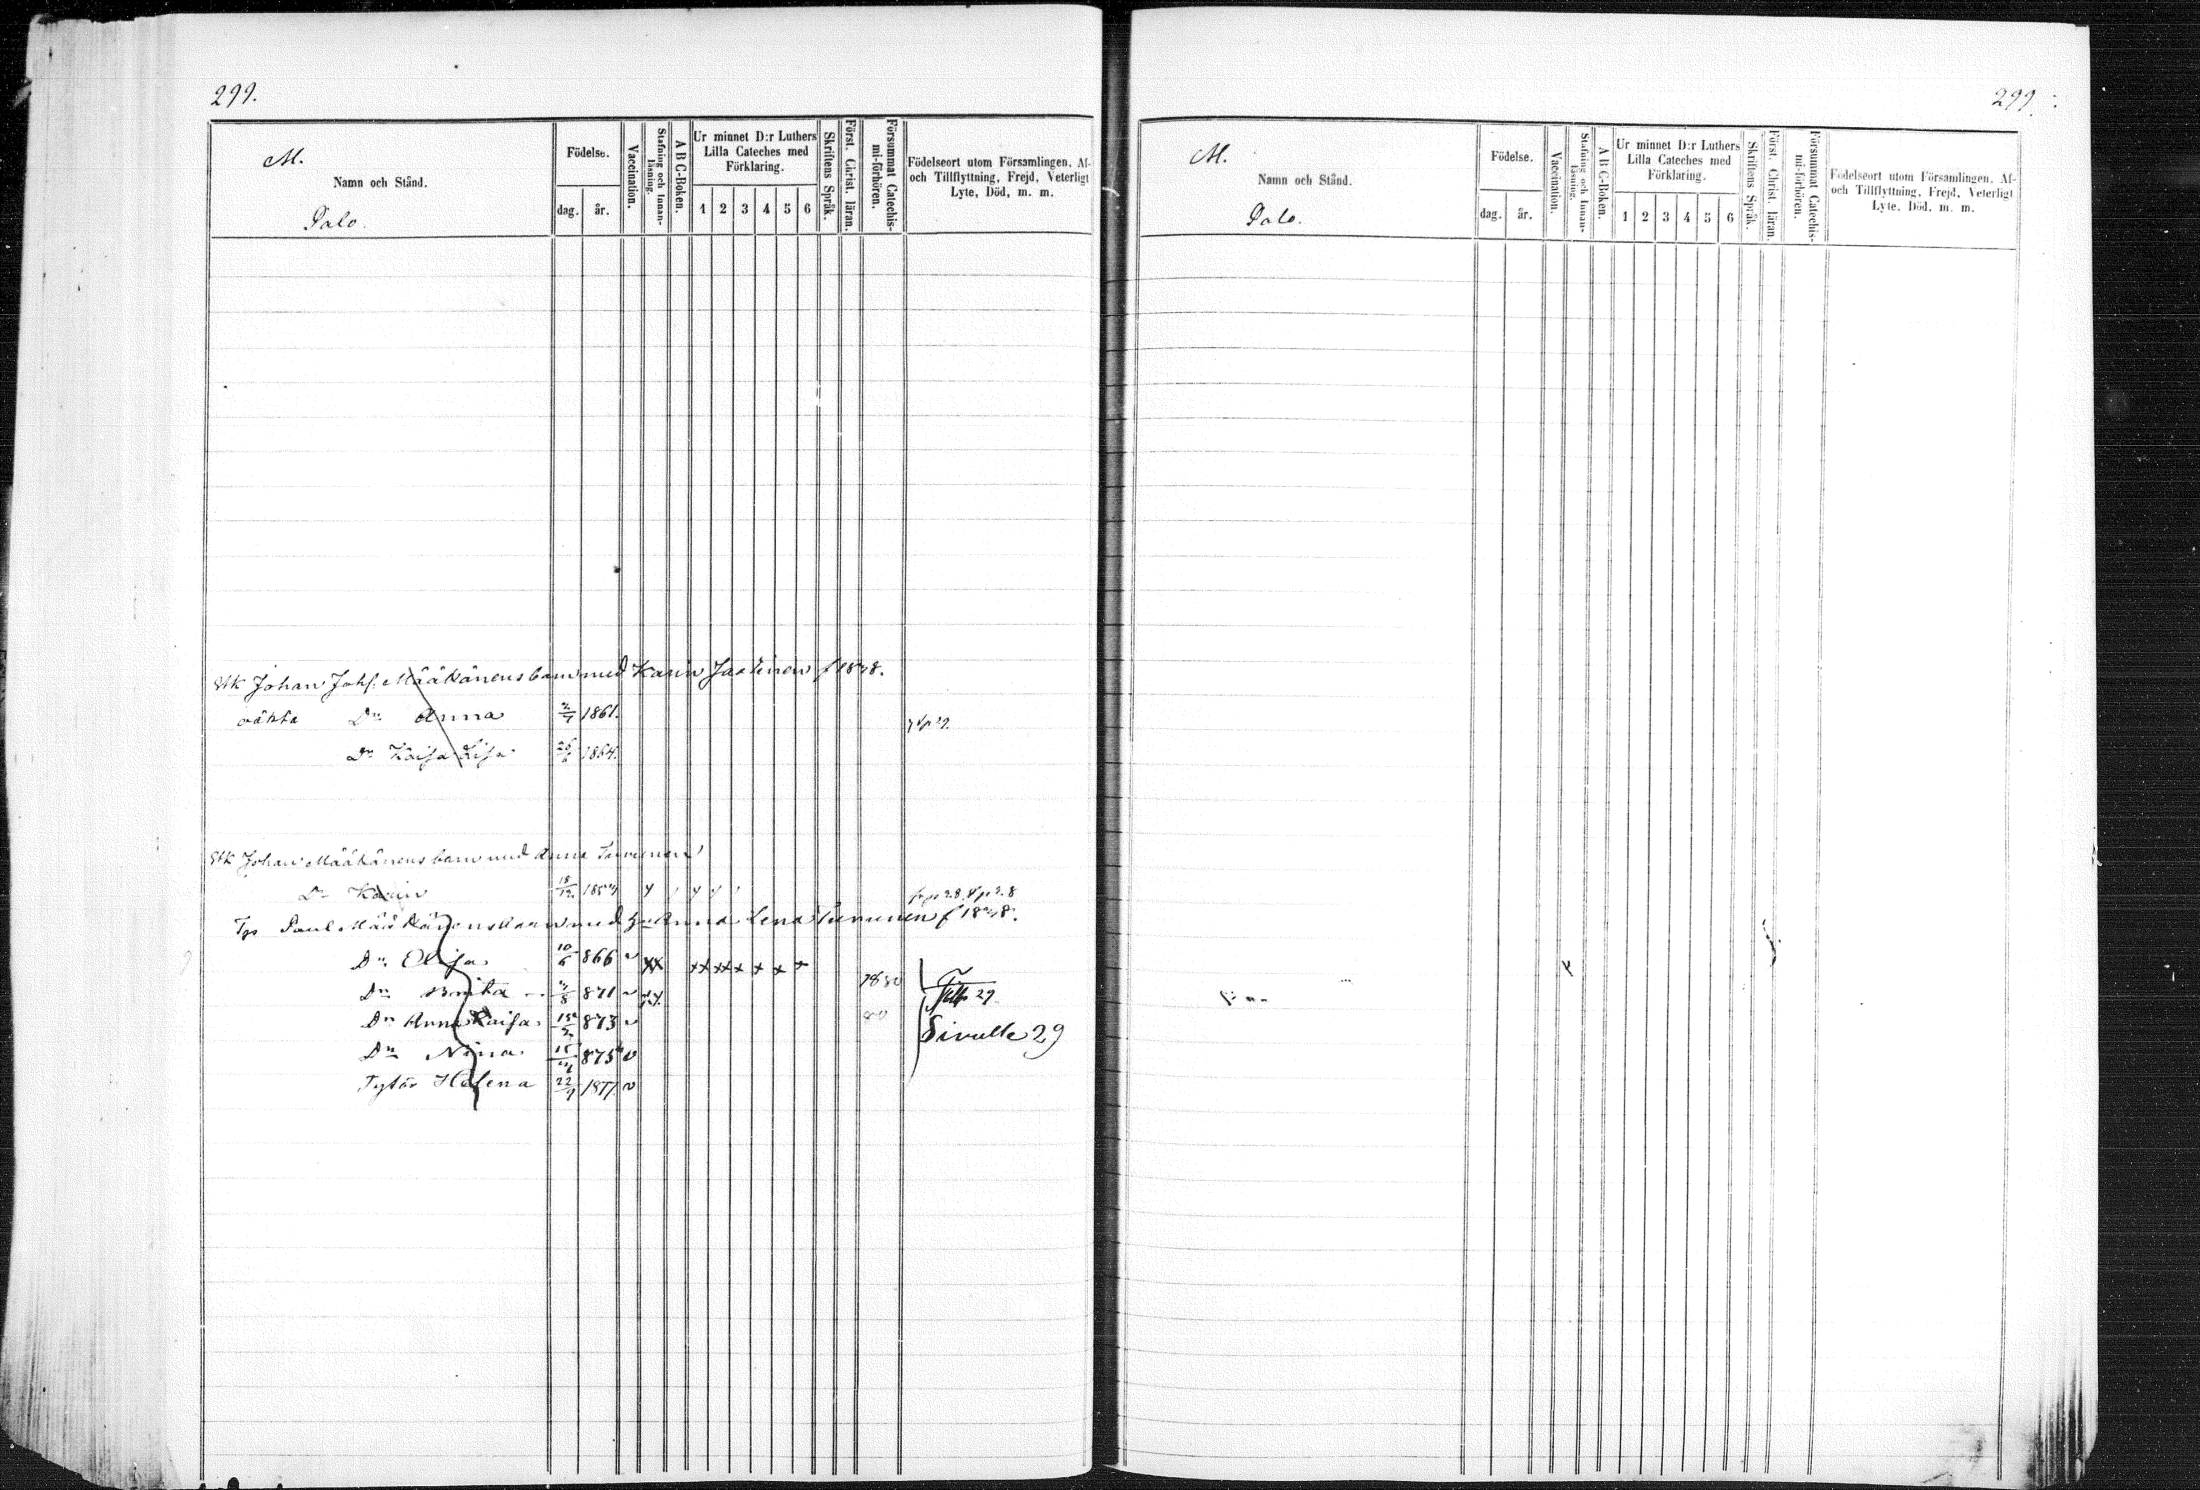 299.
M.
Namn och Stånd.
Palo.
Födelse.
dag. år.
Vaccination.
Stafning och Innanläsning.
A B C-Boken.
Ur minnet D:r Luthers
Lilla Cateches med
Förklaring.
1 2 3 4 5 6
Skriftens Språk.
Först. Christ. läran.
Försummat Catechismi-förhören.
Födelseort utom Församlingen, Af-
och Tillflyttning, Frejd, Veterligt
Lyte, Död, m. m.
Johan Joh. Määkänens barn med Karin
oäkta Dr Anna 1861.
Dr Kaisa Lisa 1864.
Johan Määkänens barn med Anna Turunen
Dr Karin
Paul Määkänens barn med Anna Lena Turunen f 18
Dr Elisa 10/6 866
Dr Brita /8 871 1880
Dr Anna Kaisa 873 80
29
Sivulle 29
Dr Nina 15 875
Tytär Helena 22/9 1877
299
M.
Namn och Stånd.
Palo.
Födelse.
dag. år.
Vaccination.
Stafning och Innanläsning.
A B C-Boken.
Ur minnet D:r Luthers
Lilla Cateches med
Förklaring.
1 2 3 4 5 6
Skriftens Språk.
Först. Christ. läran.
Försummat Catechismi-förhören.
Födelseort utom Församlingen, Af-
och Tillflyttning, Frejd, Veterligt
Lyte, Död, m. m.